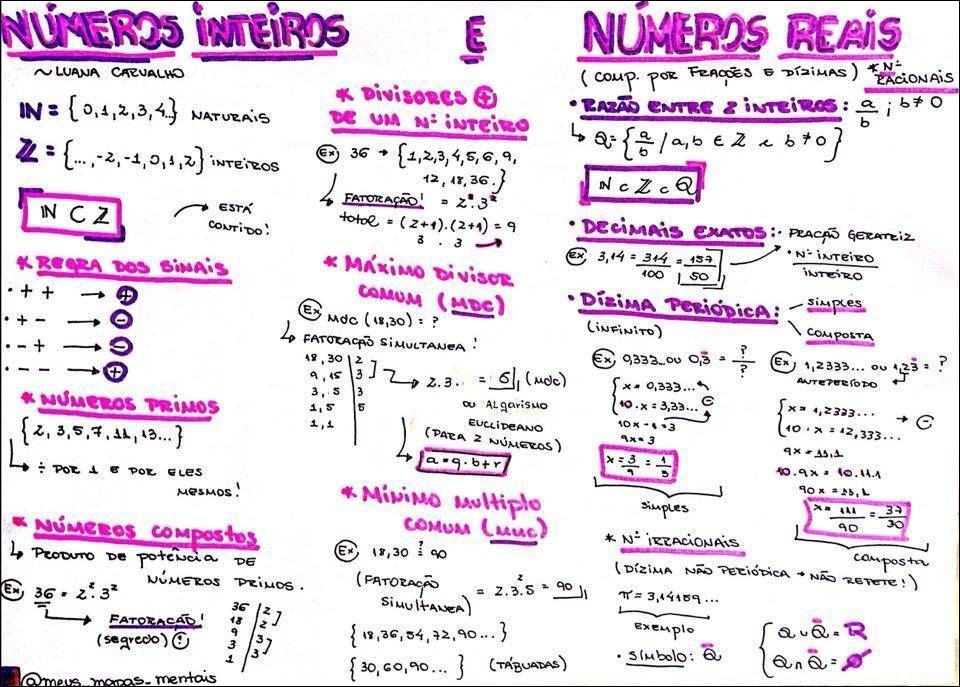 NÚMEROS INTEIROS E NÚMEROS REAIS
~ LUANA CARVALHO
IN = {0,1,2,3,4..} NATURAIS
ℤ = {...,-2,-1,0,1,2} INTEIROS
IN ⊂ ℤ
→ ESTÁ
CONTIDO!
* REGRA DOS SINAIS
· + + → ⊕
· + - → ⊖
· - + → ⊖
· - - → ⊕
* NÚMEROS PRIMOS
{2,3,5,7,11,13...}
↳ ÷ POR 1 E POR ELES
MESMOS!
* NÚMEROS COMPOSTOS
↳ PRODUTO DE POTÊNCIA DE
NÚMEROS PRIMOS.
Ex 36 = 2².3²
→ FATORAÇÃO!
(segredo)
36 | 2
18 | 2
9 | 3
3 | 3
1
@meus_mapas_mentais
* DIVISORES ⊕
DE UM Nº INTEIRO
Ex 36 → {1,2,3,4,5,6,9,
12,18,36.}
↳ FATORAÇÃO! = 2².3²
total = (2+1).(2+1) = 9
3 . 3
* MÁXIMO DIVISOR
COMUM (MDC)
Ex MDC (18,30) = ?
↳ FATORAÇÃO SIMULTANEA!
18,30 | 2
9,15 | 3
3,5 | 3
1,5 | 5
1,1
→ 2.3.. = 6 (MDC)
OU ALGARISMO
EUCLIDEANO
(PARA 2 NÚMEROS)
a = q.b+r
* MÍNIMO MULTIPLO
COMUM (MMC)
Ex 18,30 = 90
(FATORAÇÃO
SIMULTANEA) = 2.3².5 = 90
{18,36,54,72,90...}
{30,60,90...} (TABUADAS)
(COMP. POR FRAÇÕES E DÍZIMAS) * Nº RACIONAIS
· RAZÃO ENTRE 2 INTEIROS: a/b ; b≠0
↳ Q={a/b / a,b ∈ ℤ e b≠0}
IN ⊂ ℤ ⊂ Q
· DECIMAIS EXATOS: · FRAÇÃO GERATRIZ
Ex 3,14 = 314/100 = 157/50
· Nº INTEIRO
INTEIRO
· DÍZIMA PERIÓDICA: simples
COMPOSTA
(INFINITO)
Ex 0,333.. ou 0,3̄ = ?/?
{x = 0,333...
10.x = 3,33...
10x - x = 3
9x = 3
x = 3/9 = 1/3
simples
Ex 1,2333... ou 1,23̄ = ?
ANTEPERÍODO
{x = 1,2333...
10.x = 12,333...
9x = 11,1
10.9x = 10.11.1
90x = 11,1
x = 111/90 = 37/30
composta
* Nº IRRACIONAIS
(DÍZIMA NÃO PERIÓDICA → NÃO REPETE!)
π = 3,14159...
EXEMPLO
· SÍMBOLO: Q̄
{Q ∪ Q̄ = R
Q ∩ Q̄ = ∅